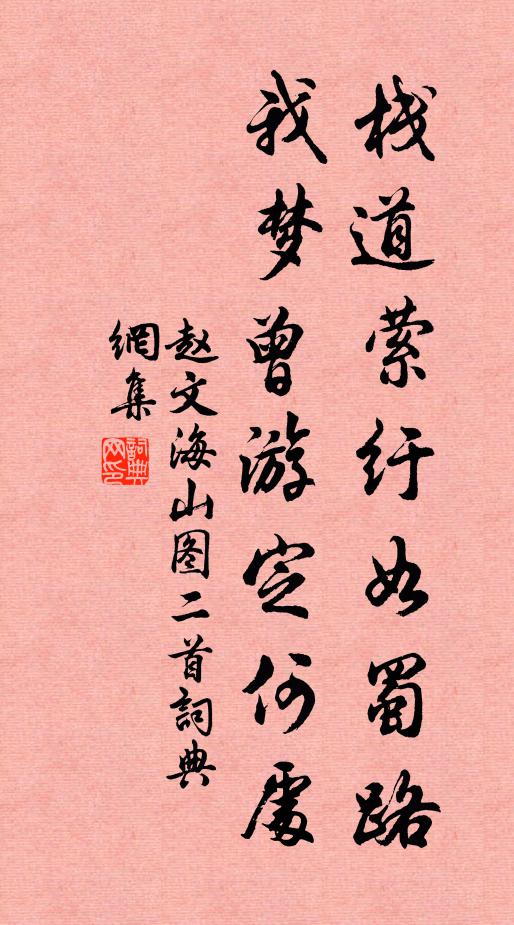 栈道萦纡如蜀路
我梦曾游定何处
赵文海山图二首詞典
網集
詞典网印